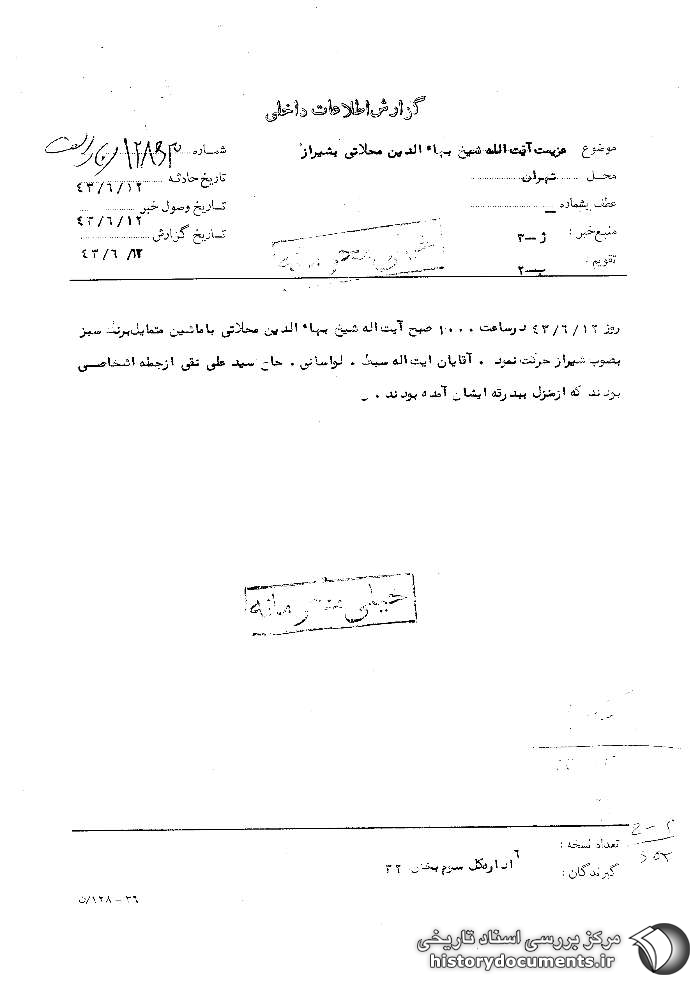 گزارش اطلاعات داخلی
موضوع عزیمت آیت الله شیخ بهاء الدین محلاتی بشیراز
شماره ۱۲۸۵۳
محل تهران
تاریخ حادثه ۴۳/۶/۱۲
عطف بشماره ــ
تاریخ وصول خبر ۴۳/۶/۱۲
منبع خبر : ژ–۳
تاریخ گزارش ۴۳/۶/۱۲
تقویم : ب–۲
خیلی محرمانه
روز ۴۳/۶/۱۲ درساعت ۱۰۰۰ صبح آیت اله شیخ بهاء الدین محلاتی باماشین متمایل برنگ سبز
بصوب شیراز حرکت نمود . آقایان ایت اله سبط . لواسانی . حاج سید علی نقی ازجمله اشخاصی
بودند که ازمنزل ببدرقه ایشان آمده بودند .
خیلی محرمانه
تعداد نسخه :
گیرندگان : اداره کل سوم بخش ۳۲
۳۶ – ۱۲۸/ن
مرکز بررسی اسناد تاریخی
historydocuments.ir